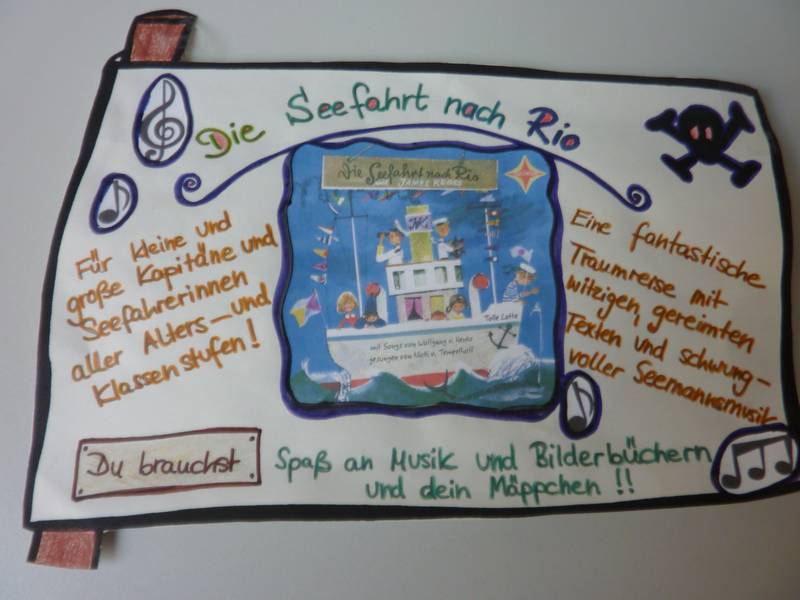 Die Seefahrt nach Rio
Die Seefahrt nach Rio
von JAMES KRÜSS
Tolle Lotte
mit Songs von Wolfgang v. Henko
Für kleine und
große Kapitäne und
Seefahrerinnen
aller Alters- und
Klassenstufen!
Eine fantastische
Traumreise mit
witzigen, gereimten
Texten und schwung-
voller Seemannsmusik
Du brauchst
Spaß an Musik und Bilderbüchern
und dein Mäppchen !!